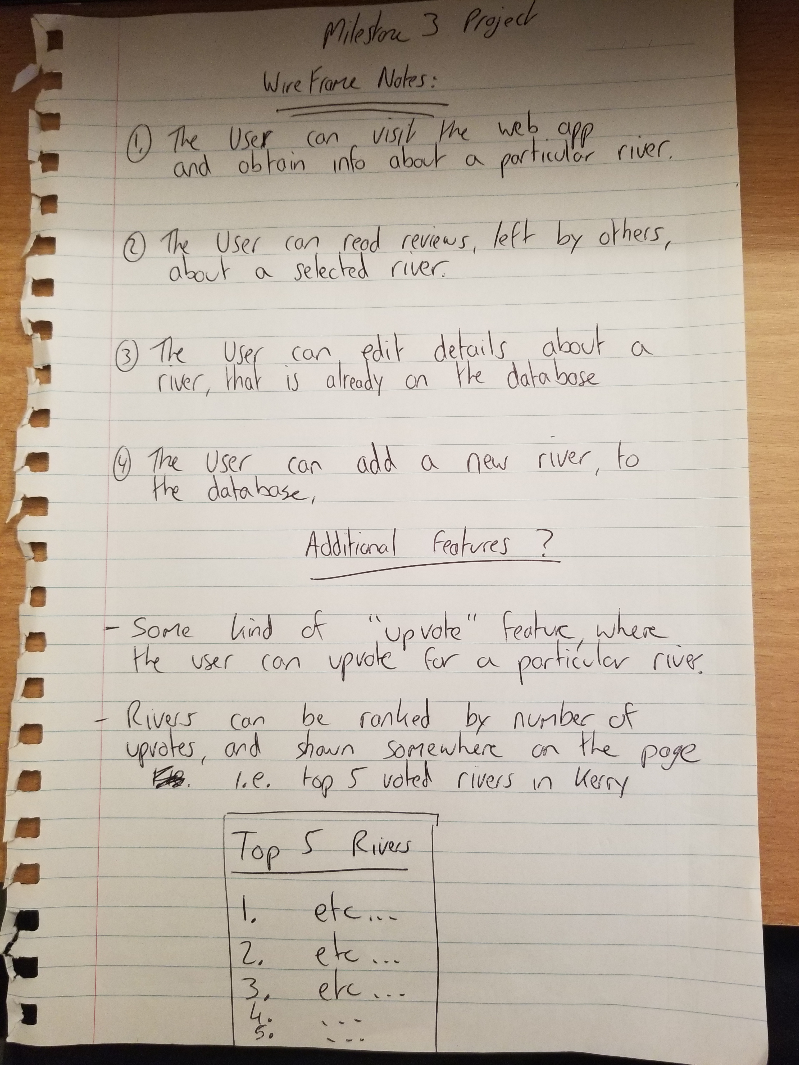 Milestone 3 Project
WireFrame Notes:
1. The User can visit the web app
and obtain info about a particular river.
2 The User can read reviews, left by others,
about a selected river.
3 The User can edit details about a
river, that is already on the database
4 The User can add a new river, to
the database,
Additional Features ?
- Some kind of "upvote" featue, where
the user can upvote for a particular river.
- Rivers can be ranked by number of
upvotes, and shown somewhere on the page
i.e. top 5 voted rivers in Kerry
Top 5 Rivers
1. etc...
2. etc...
3. etc...
4. ...
5. ...